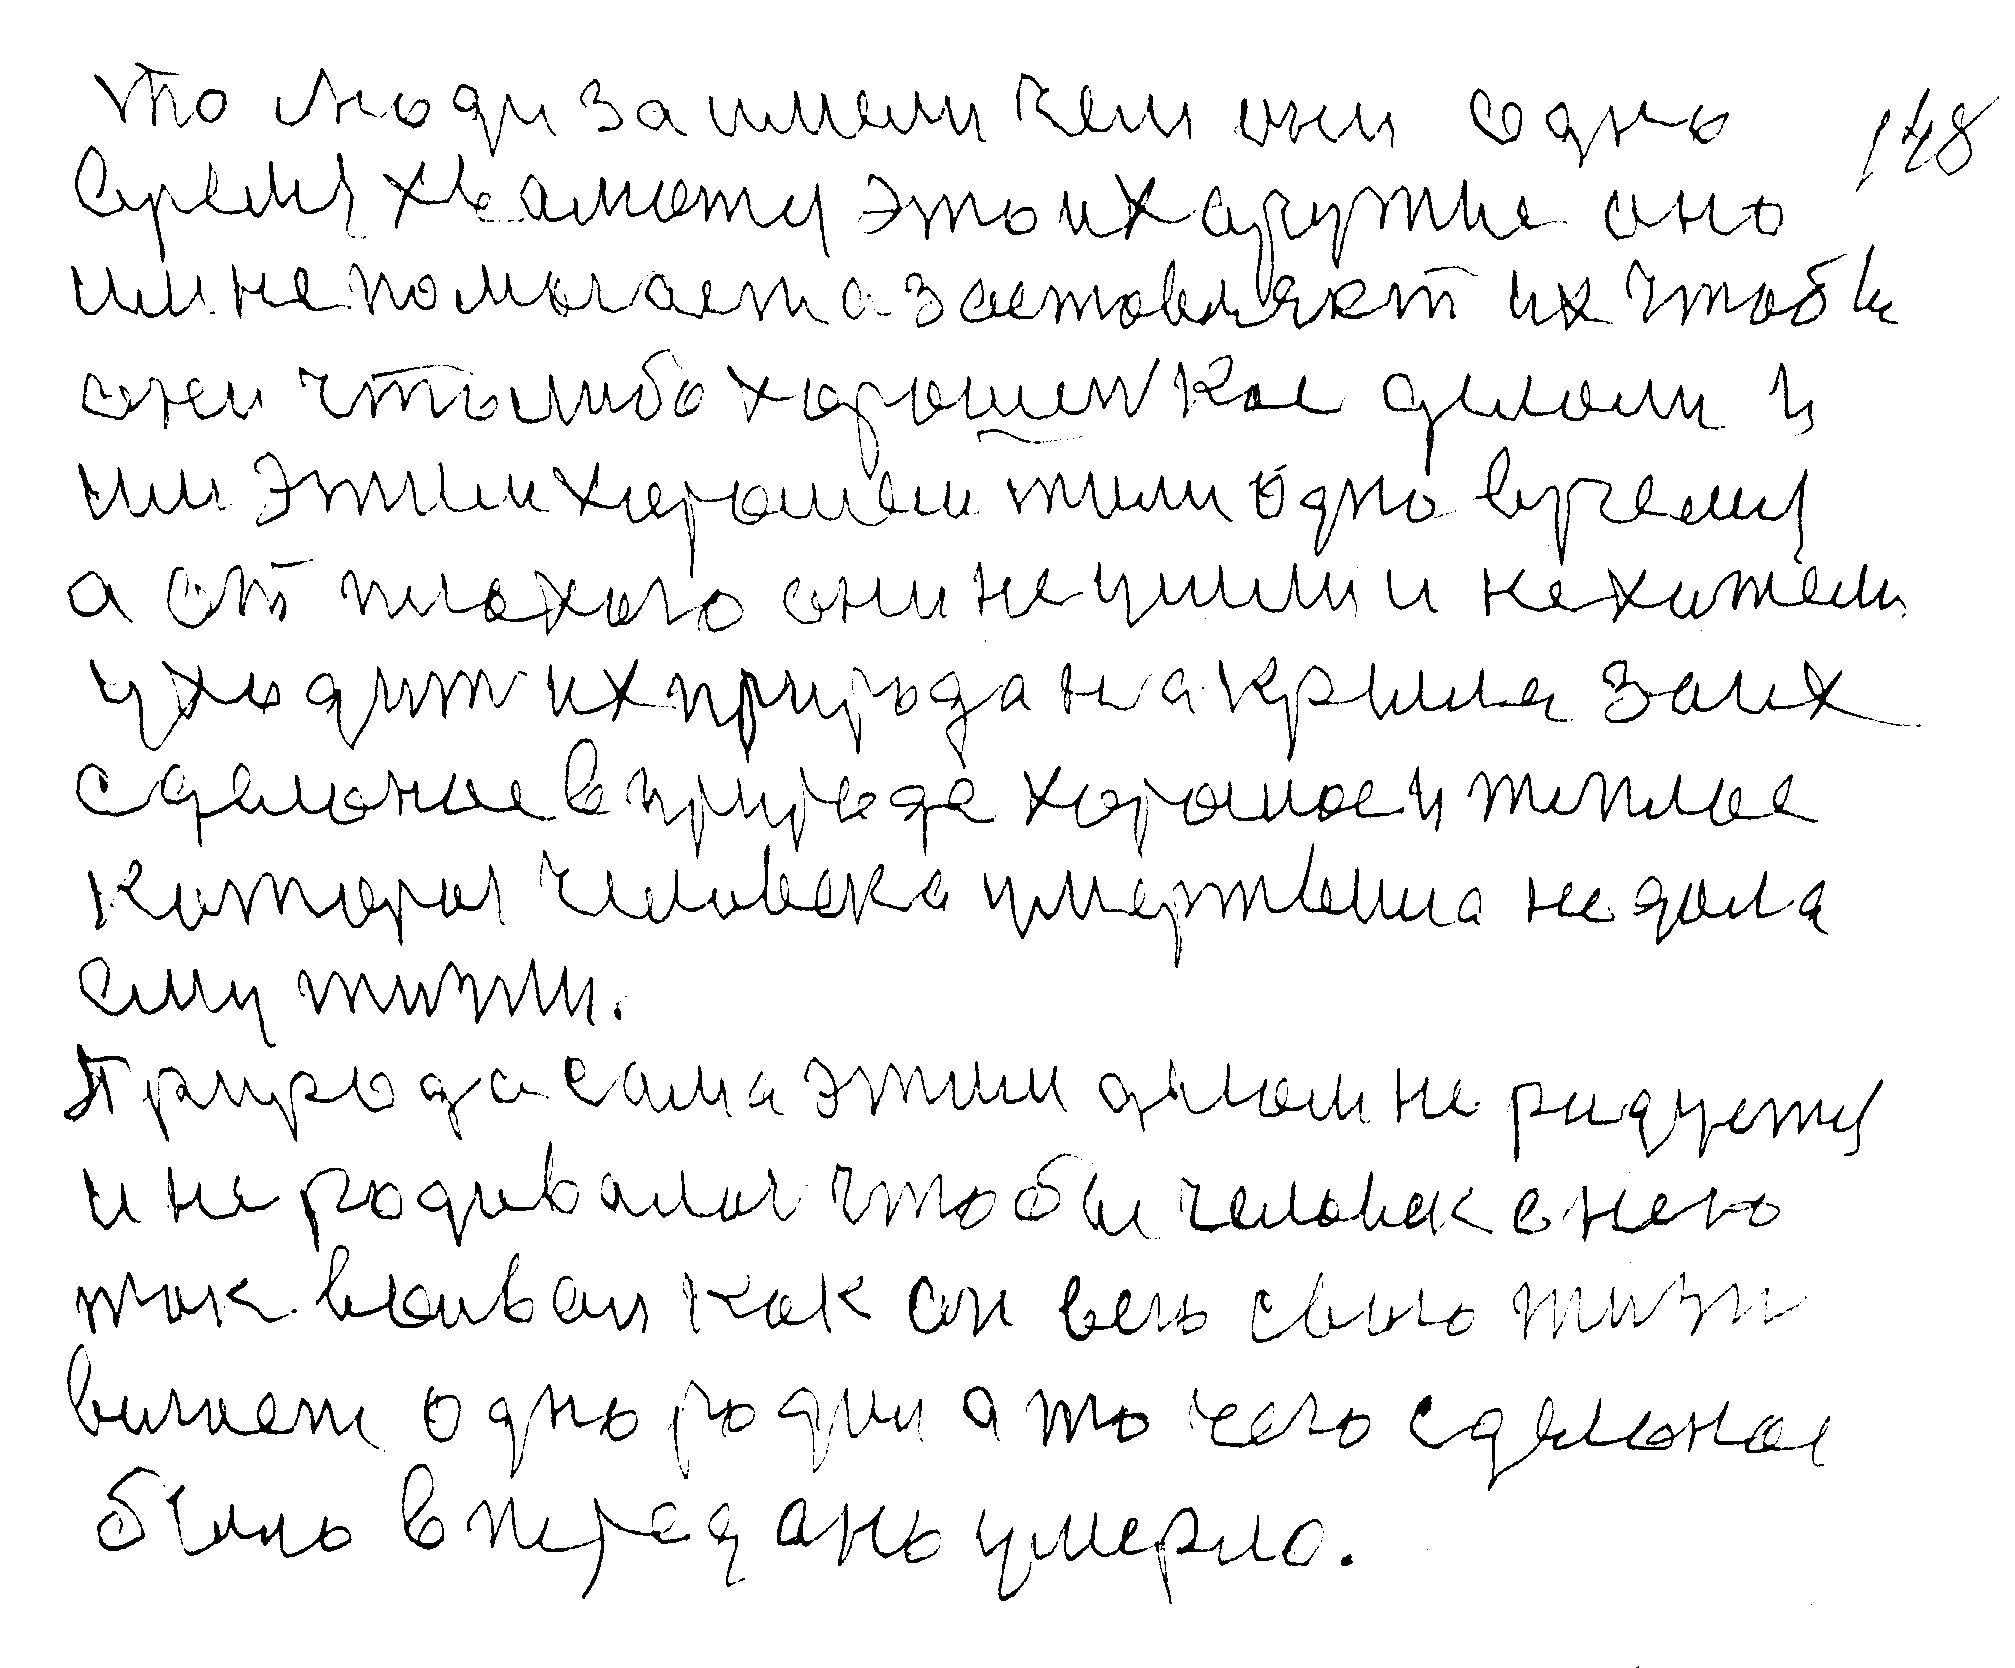 что люди заимели чем они одно 148
время хвамотя это их аружие оно
им не помогает а заставляют их чтобы
они чтылибо хорошенкое делали и
им этим хорошем жили одно время
а от плохого они не ушли и не хотели
уходит их природа накрыла за их
сделоное в природе хорошое и теплое
которая человека умертвила не дала
ему жизни.
Природа сама этим делом не радуется
и не родивалас чтобы человек с нею
так воивал как он всю свою жизн
воюет одно родил а то чего сделоное
было впереди ано умерло.